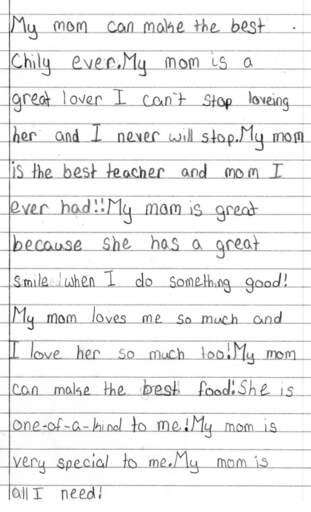 My mom can make the best
Chily ever.My mom is a
great lover I can't stop loveing
her and I never will stop.My mom
is the best teacher and mom I
ever had!!My mom is great
because she has a great
smile when I do something good!
My mom loves me so much and
I love her so much too!My mom
can make the best food!She is
one-of-a-kind to me!My mom is
very special to me.My mom is
all I need!